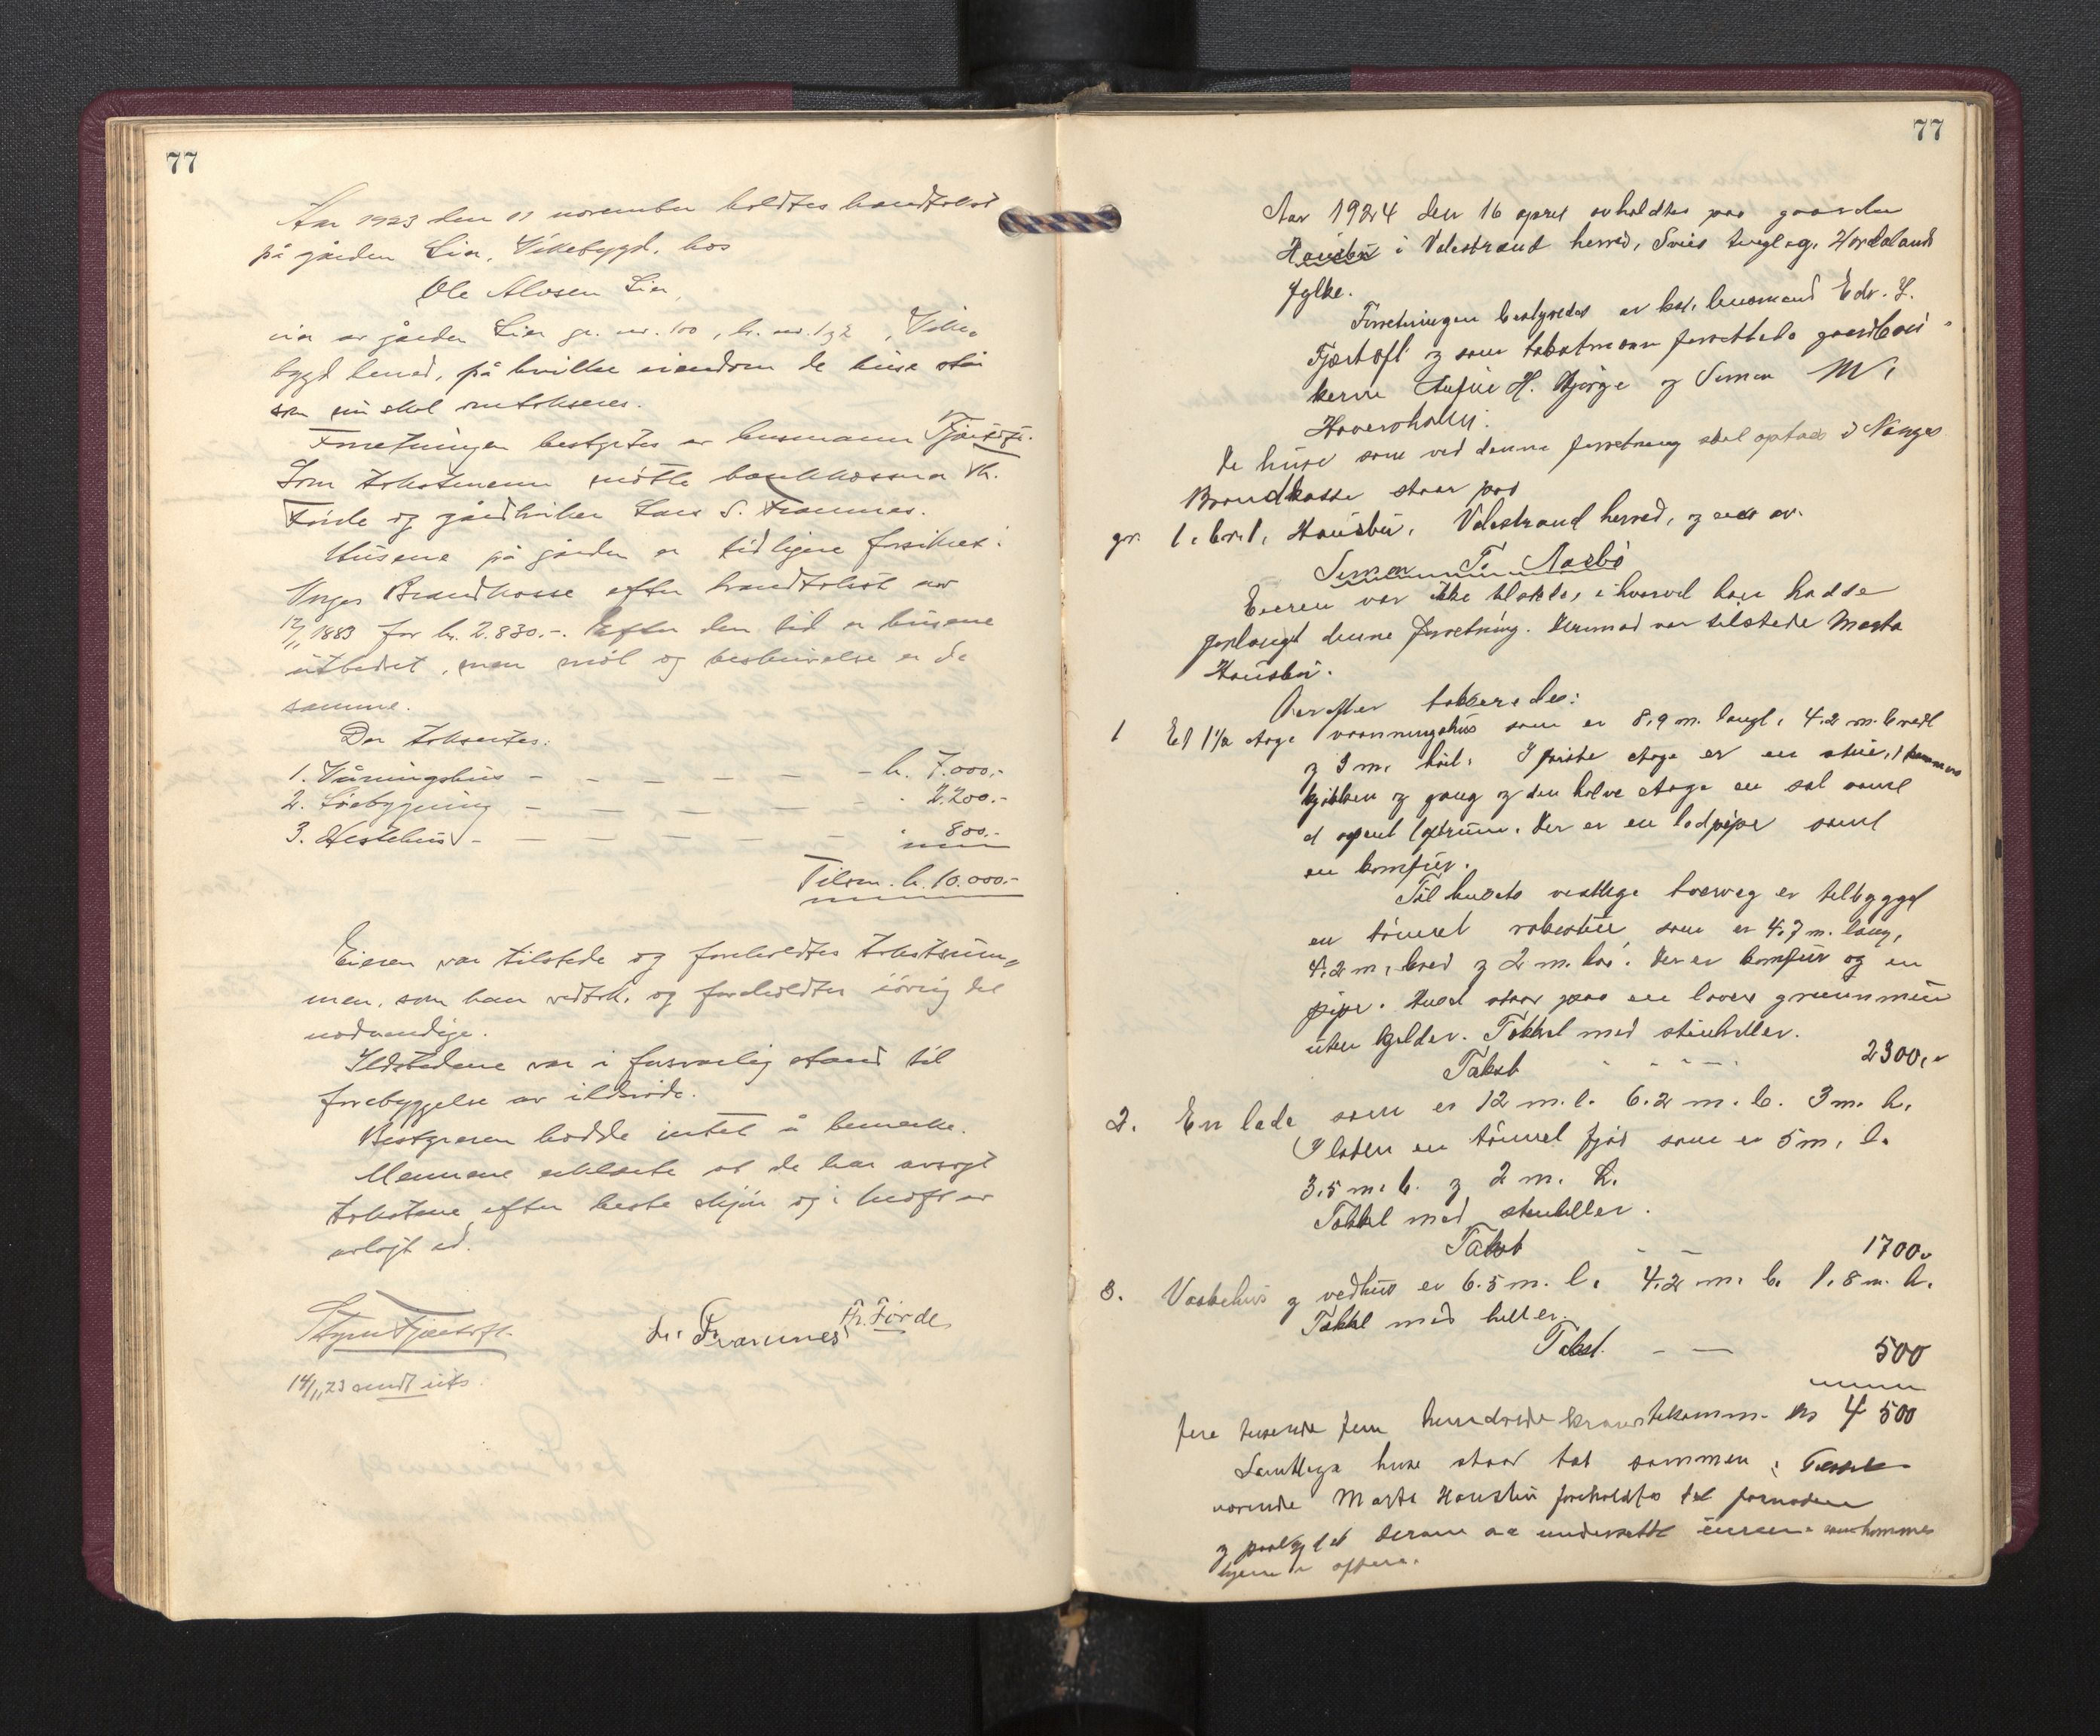 77
Aar 1923 den 11 november holdtes brandtakst
på gården Lier, Vikebygd, hos
Ole Alvsen Lier,
eier av gården Lier gr. nr. 100, br. nr. 1 og 2, Vike-
bygd herred, på hvilken eiendom de huse står
som nu skal omtakseres.
Forretningen bestyrtes av lensmann Fjærtoft.
Som takstmenn møtte bankkasserer Th.
Førde og gårdbruker Lars S. Framnes.
Husene på gården er tidligere forsikret i
Norges Brandkasse efter brandtakst av
12/11 1883 for kr. 2.830.-. Efter den tid er husene
utbedret, men mål og beskrivelse er de
samme.
Der takseres:
1. Våningshus - - - - - - - kr. 7.000.-
2. Løebygning - - - - - - " 2.200.-
3. Hestehus - - - - - - " 800.-
Tilsm. kr. 10.000.-
Eieren var tilstede og foreholdtes takstsum-
men, som han vedtok, og foreholdtes iøvrig det
nødvendige.
Ildstedene var i forsvarlig stand til
forebyggelse av ildsvåde.
Bestyreren hadde intet å bemerke.
Mennene erklærte at de har avsagt
takstene efter beste skjøn og i kraft av
avlagt ed.
Fjærtoft.
L. S. Framnes Th. Førde
14/11 23 sendt uts.
77
Aar 1924 den 16 april avholdtes paa gaarden
Houstei i Valestrand herred, Sveio tinglag, Hordaland
fylke.
Forretningen bestyredes av kst. lensmand Edv. L.
Fjærtoft og som takstmænn forrettede gaardbru-
kerne H. Bjørge og Simon M.
Haavershollen.
De huse som ved denne forretning skal optaes i Norges
Brandkasse staar paa
gr. 1. br. 1, Houstei, Valestrand herred, og eies av
Simon T. Aasbø
Eieren var ikke tilstede, ihvorvel han hadde
forlangt denne forretning. Derimod var tilstede Marta
Houstei.
Derefter takseredes:
1 Et 1½ etage vaaningshus som er 8,9 m. langt, 4.2 m. bredt
og 3 m. høit. I første etage er en stue, 1 kammers
kjøkken og gang og den halve etage en sal samt
et aapent loftrum. Der er en lodpipe samt
en komfur.
Til husets vestlige tverveg er tilbygget
en tømret røkestue som er 4.7 m. lang,
4.2 m. bred og 2 m. høi. Der er komfur og en
pipe. Huset staar paa en lavere grunnmur
uten kjelder. Tækket med stenheller.
Takst - - - - 2300,-
2. En lade som er 12 m. l. 6.2 m. b. 3 m. h.
I laden en tømret fjøs som er 5 m. l.
3.5 m. b. og 2 m. h.
Tækket med stenheller.
Takst - - 1700,-
3. Vaskehus og vedhus er 6.5 m. l. 4.2 m. b. 1.8 m. h.
Tækket med heller.
Takst. - - 500
fire tusende fem hundrede kroner tilsamm. kr 4 500
Samtlige huse staar tat sammen.
værende Marta Houstei foreholdtes det fornødne
og paalagdes denne aa underrette eieren